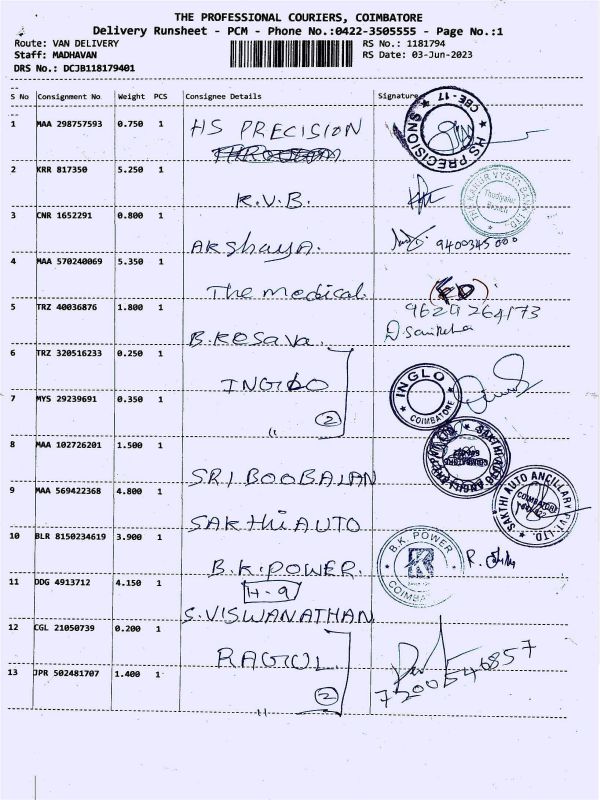 THE PROFESSIONAL COURIERS, COIMBATORE
Delivery Runsheet - PCM - Phone No.:0422-3505555 - Page No.:1
Route: VAN DELIVERY RS No.: 1181794
Staff: MADHAVAN RS Date: 03-Jun-2023
DRS No.: DCJB118179401
S No Consignment No Weight PCS Consignee Details Signature
1 MAA 298757593 0.750 1 HS PRECISION
HS PRECISIONS CBE-17
2 KRR 817350 5.250 1 K.V.B.
THE KARUR VYSYA BANK LTD.
Branch
3 CNR 1652291 0.800 1 Akshaya. 9400345000
4 MAA 570240069 5.350 1 The medical
5 TRZ 40036876 1.800 1 B.Kesava. 9624264173
6 TRZ 320516233 0.250 1 INGLO
INGLO COIMBATORE
7 MYS 29239691 0.350 1 " 2
8 MAA 102726201 1.500 1 SRI BOOBALAN
9 MAA 569422368 4.800 1 SAKthi AUTO
SAKTHI AUTO ANCILLARY PVT. LTD.
10 BLR 8150234619 3.900 1 B.K.POWER.
B.K. POWER
H-9
11 DDG 4913712 4.150 1 S.VISWANATHAN
12 CGL 21050739 0.200 1 RAGUL
7200546857
13 JPR 502481707 1.400 1 " 2